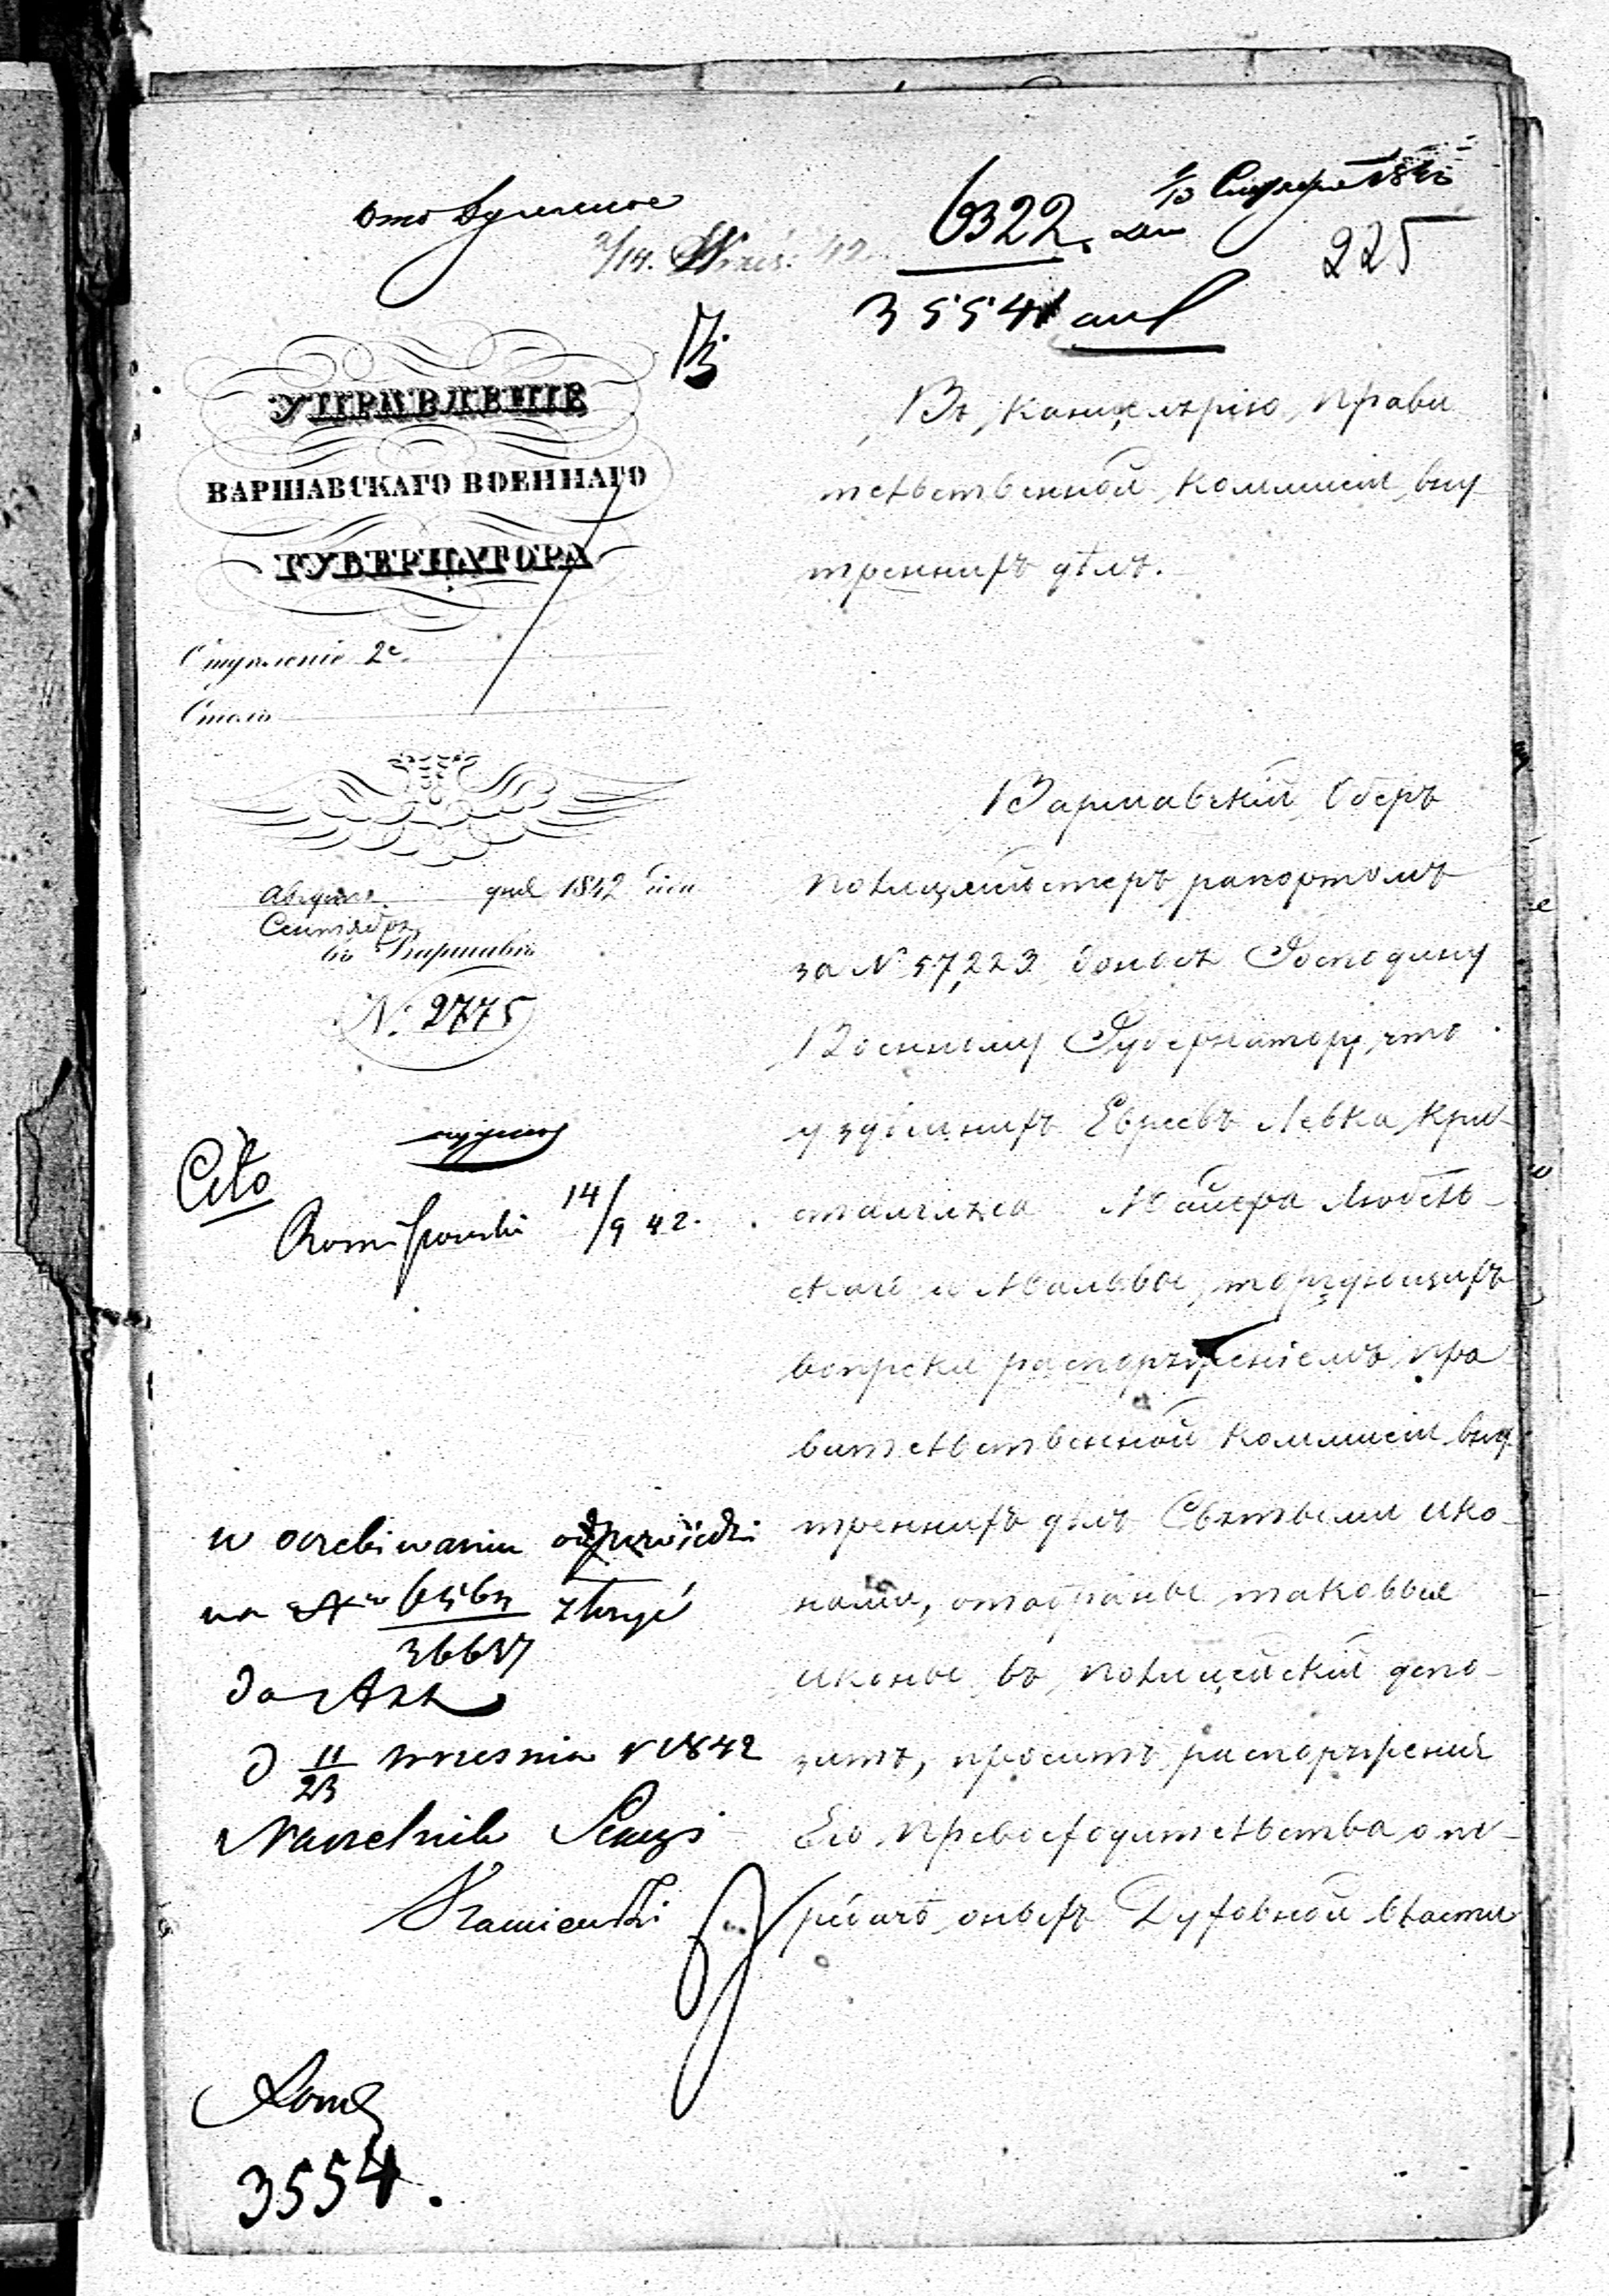 6322.
225
2/14. Wrześ. 42
3554
УПРАВЛЕНІЕ
ВАРШАВСКАГО ВОЕННАГО
ГУБЕРНАТОРА
Отделеніе 2е
Столъ
Августа дня 1842 года
Сентября
въ Варшавѣ
№ 2775
Cito
14/9 42.
w oczekiwaniu odpowiedzi
na złożyć
36637
do Akt
d 11/23 września r 1842
Naczelnik Sekcyi
Kamieński
3554.
Въ Канцелярію Прави
тельственной Коммисіи Вну-
треннихъ дѣлъ.
Варшавскій Оберъ
полицеймейстеръ рапортомъ
за № 57,223 донося Господину
Военному Губернатору, что
у здѣшнихъ Евреевъ Левка Кри-
Майера Любель-
скаго и торгующихъ
вопреки распоряженіемъ Пра
вительственной Коммисіи Вну
треннихъ дѣлъ Святыми ико-
нами, отобраны таковыя
иконы въ полицейскій депо-
зитъ, проситъ распоряженія
Его Превосходительства о пе-
редачѣ оныхъ Духовной власти